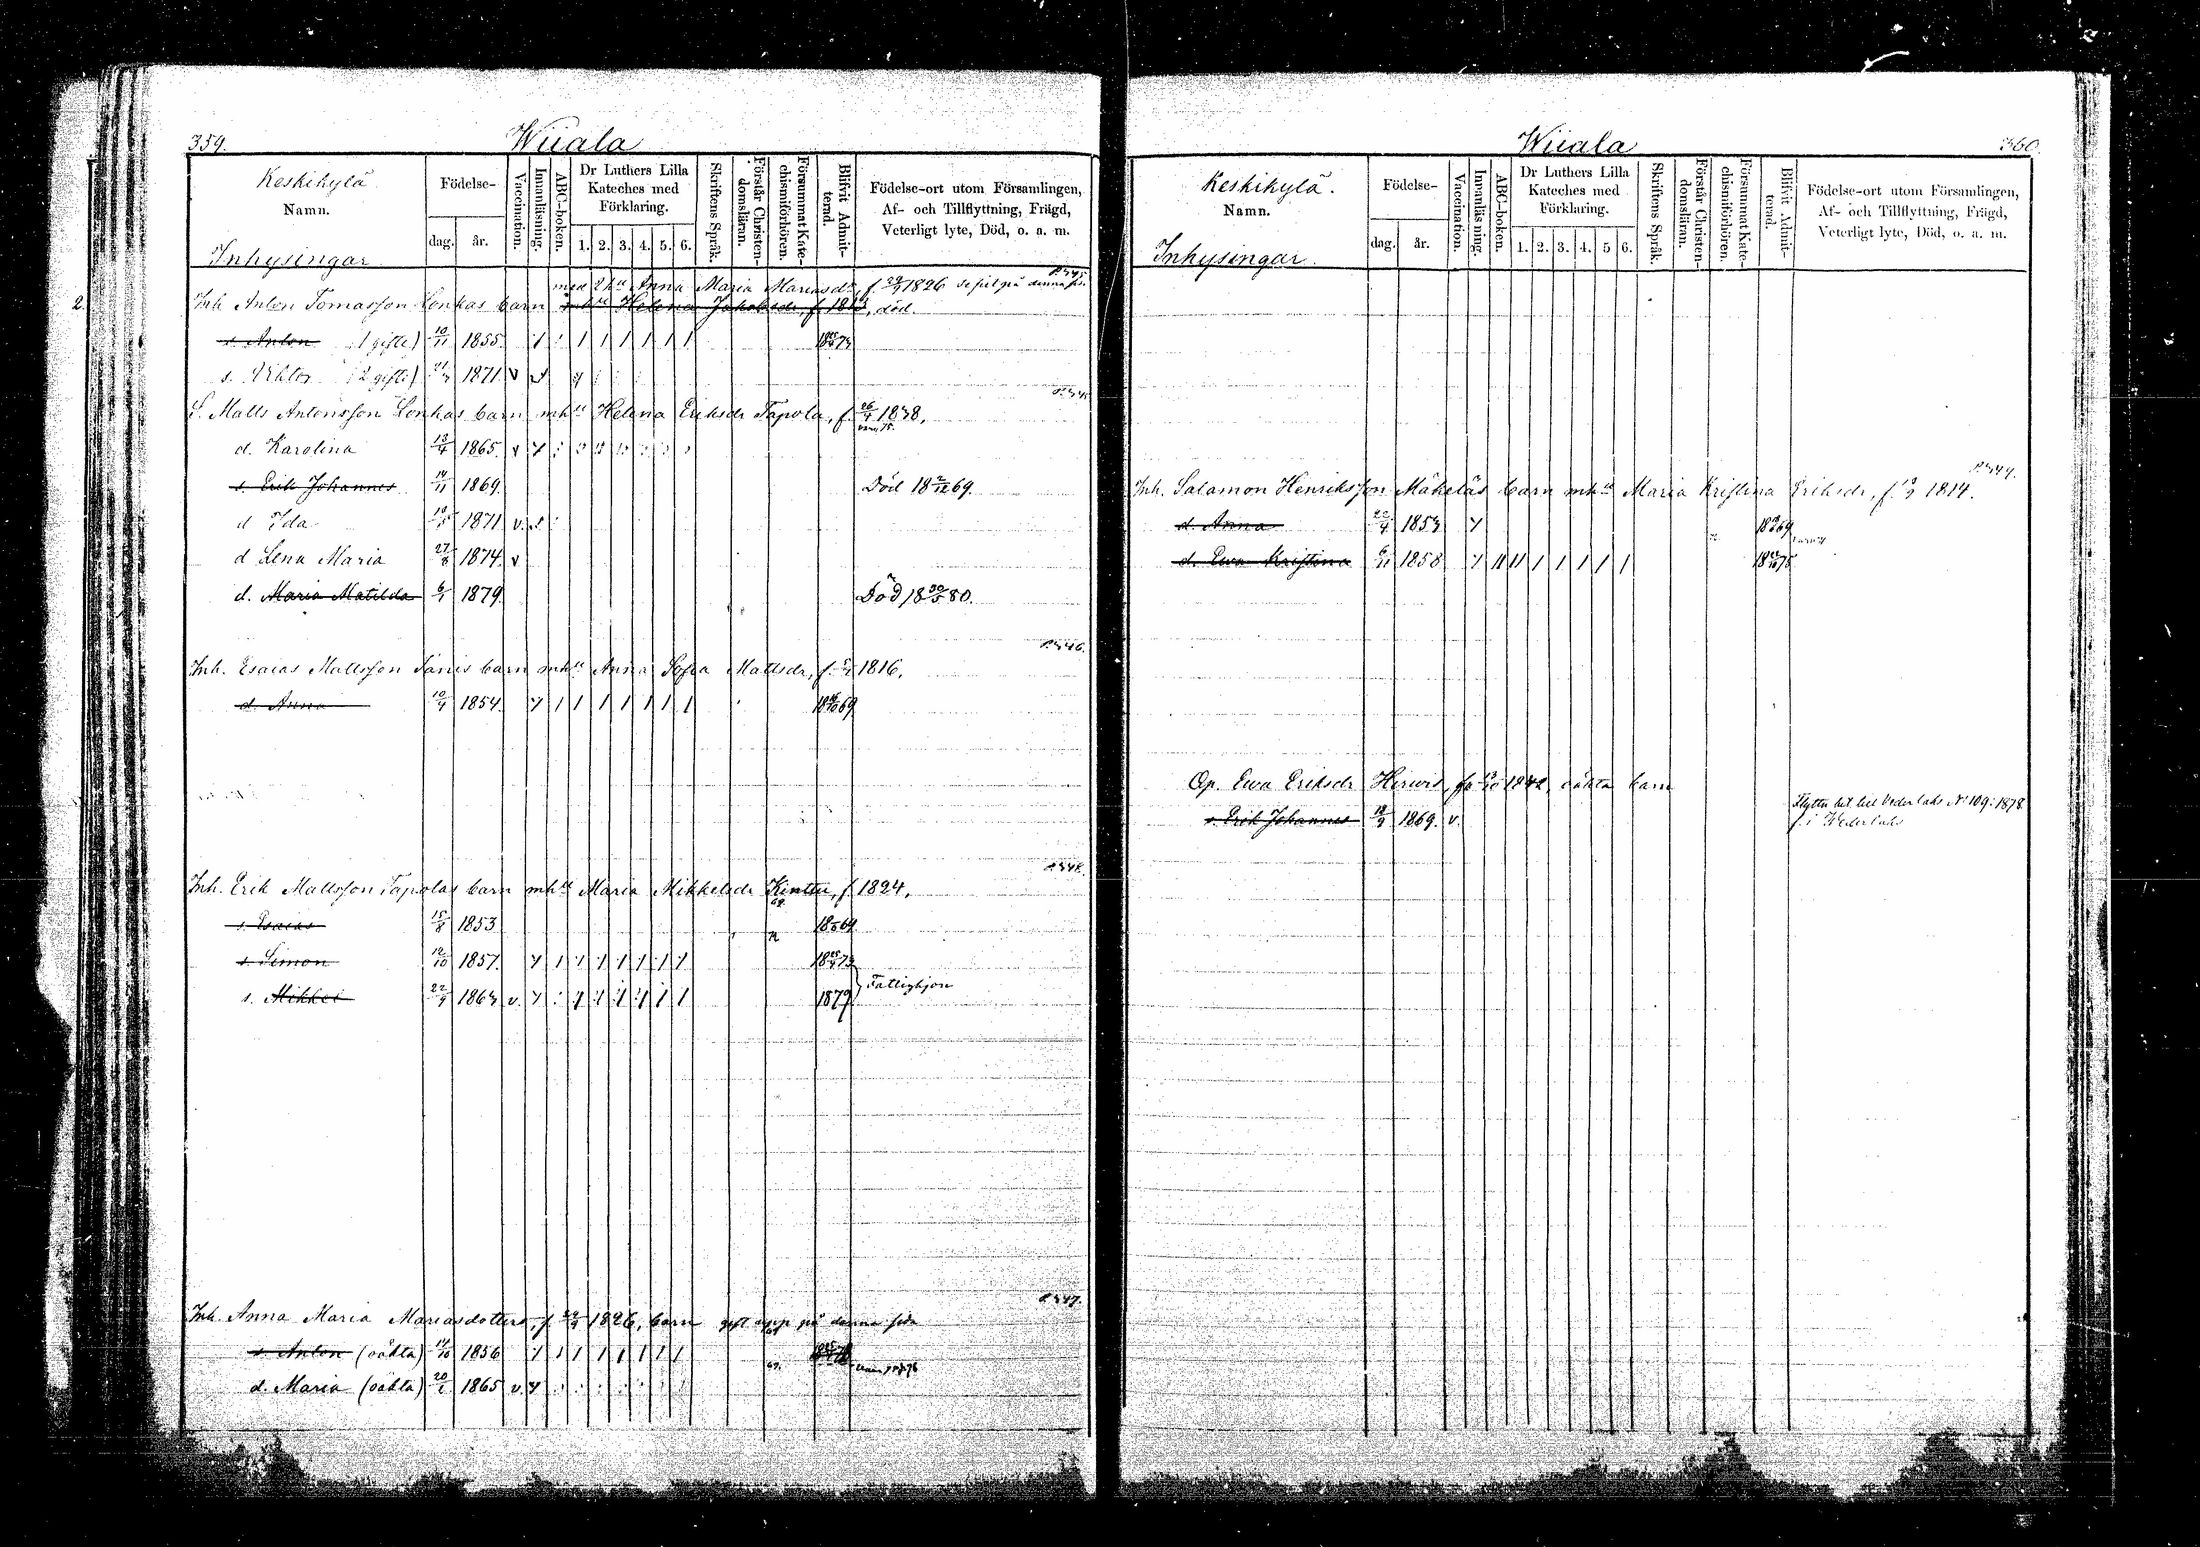 359.
Wiiala
Keskikylä
Namn.
Inhysingar
Födelse-
dag. år.
Vaccination.
Innanläsning.
ABC-boken.
Dr Luthers Lilla
Kateches med
Förklaring.
1. 2. 3. 4. 5. 6.
Skriftens Språk.
Förstår Christen-
domsläran.
Försummat Kate-
chismiförhören.
Blifvit Admit-
terad.
Födelse-ort utom Församlingen,
Af- och Tillflyttning, Frägd,
Veterligt lyte, Död, o. a. m.
P. 345
med 2 hu Anna Maria Mariasdr, f. 29/9 1826 se pil på denna sid.
Inh Anton Tomasson Lonkas barn mhu Helena Jakobsdr, f. 1813, död.
s. Anton (1 gifte) 10/11 1855.
s. Viktor (2 gifte) 1871 v
S. Matts Antonsson Lonkas barn mhu Helena Eriksdr Tapola, f. 26/4 1838,
d. Karolina 13/4 1865. v
s. Erik Johannes 14/11 1869. Död 18 2/12 69.
d Ida 10/5 1871 v.
d Lena Maria 27/8 1874. v
d. Maria Matilda 6/1 1879. Död 18 30/5 80.
P. 346.
Inh. Esaias Mattsson Tanis barn mhu Anna Sofia Mattsdr, f. 1816,
d. Anna 10/4 1854. 69
P. 348.
Inh. Erik Mattsson Tapolas barn mhu Maria Mikkelsdr Kinttu, f. 1824,
s. Esaias 15/8 1853 69
s. Simon 12/10 1857. 73
s. Mikkel 22/9 1863 v. 1879 Fattighjon
P. 347.
Inh. Anna Maria Mariasdotters, f. 29/9 1826, barn gift upp på denna sida
s. Anton (oäkta) 14/10 1856
d. Maria (oäkta) 20/1 1865 v.
Wiiala
360
Keskikylä.
Namn.
Inhysingar.
Födelse-
dag. år.
Vaccination.
Innanläsning.
ABC-boken.
Dr Luthers Lilla
Kateches med
Förklaring.
1. 2. 3. 4. 5 6.
Skriftens Språk.
Förstår Christen-
domsläran.
Försummat Kate-
chismiförhören.
Blifvit Admit-
terad.
Födelse-ort utom Församlingen,
Af- och Tillflyttning, Frägd,
Veterligt lyte, Död, o. a. m.
P. 344.
Inh. Salamon Henriksson Mäkeläs barn mhu Maria Kristina Eriksdr, f. 1814.
d. Anna 22/4 1853 69
d. Ewa Kristina 6/11 1858 75
Op. Ewa Eriksdr Hirwis, 1842, oäkta barn
s. Erik Johannes 18/9 1869. v. Flyttn. bet. till Vederlaks No 109: 1878
f. i Wederlaks